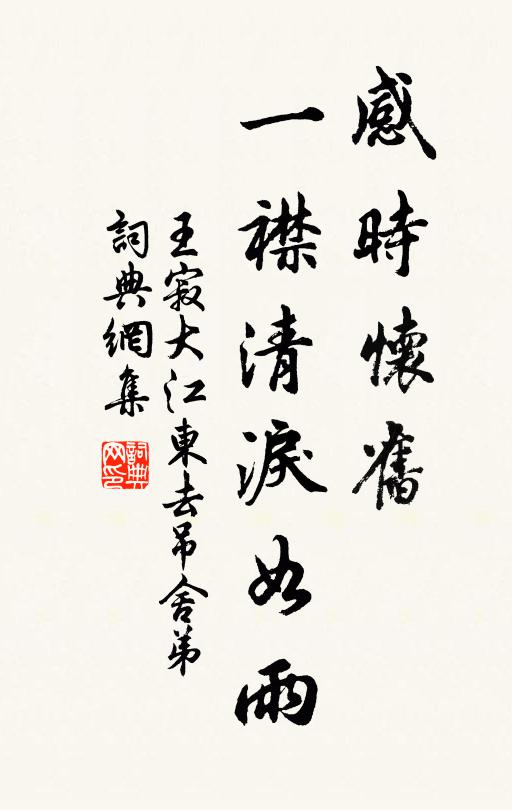 感時懷舊
一襟清淚如雨
王寂大江東去吊舍弟
詞典網集
詞典網印